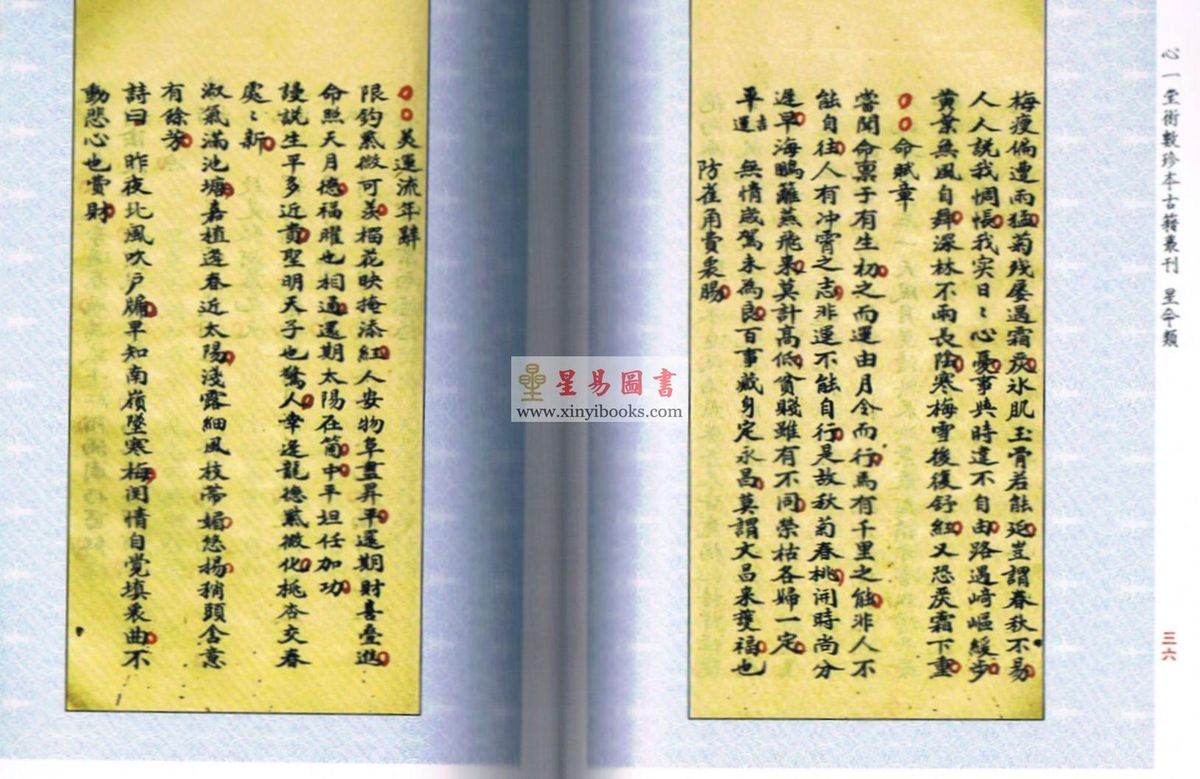 心一堂術數珍本古籍叢刊 星命類
三六
梅瘦偏遭雨猛菊殘屡遇霜灰氷肌玉骨若能延豈謂春秋不易
人人説我惆悵我实日〻心憂事與時違不自由路遇崎嶇緩步
黄葉無風自舞深林不雨長陰寒梅雪後復舒紅又恐灰霜下重
命賦章
嘗聞命禀于有生初之而運由月令而行馬有千里之能非人不
能自往人有冲霄之志非運不能自行是故秋菊春桃開時尚分
遲早海鵬籬燕飛果莫計高低貧賤雖有不同榮枯各歸一定
平運 吉 無情歲駕未為良百事藏身定永昌莫謂文昌来獲福也
防雀角費裘賜
美運流年辭
限鈞葱微可羡榴花映掩添紅人安物阜盡昇平還期財喜叠進
命照天月德福曜也相逼還期太陽在箇中平坦任加功
謾説生平多近貴聖明天子也驚人幸逢龍德葱微化桃杏交春
處〻新
淑氣滿池塘嘉植逢春近太陽淺露細風枝蒂媚悠揚稍頭含意
有餘芳
詩曰 昨夜北風吹户牖早知南嶺墜寒梅闵情自覺填衷曲不
動悲心也賞財
星易圖書
www.xinyibooks.com